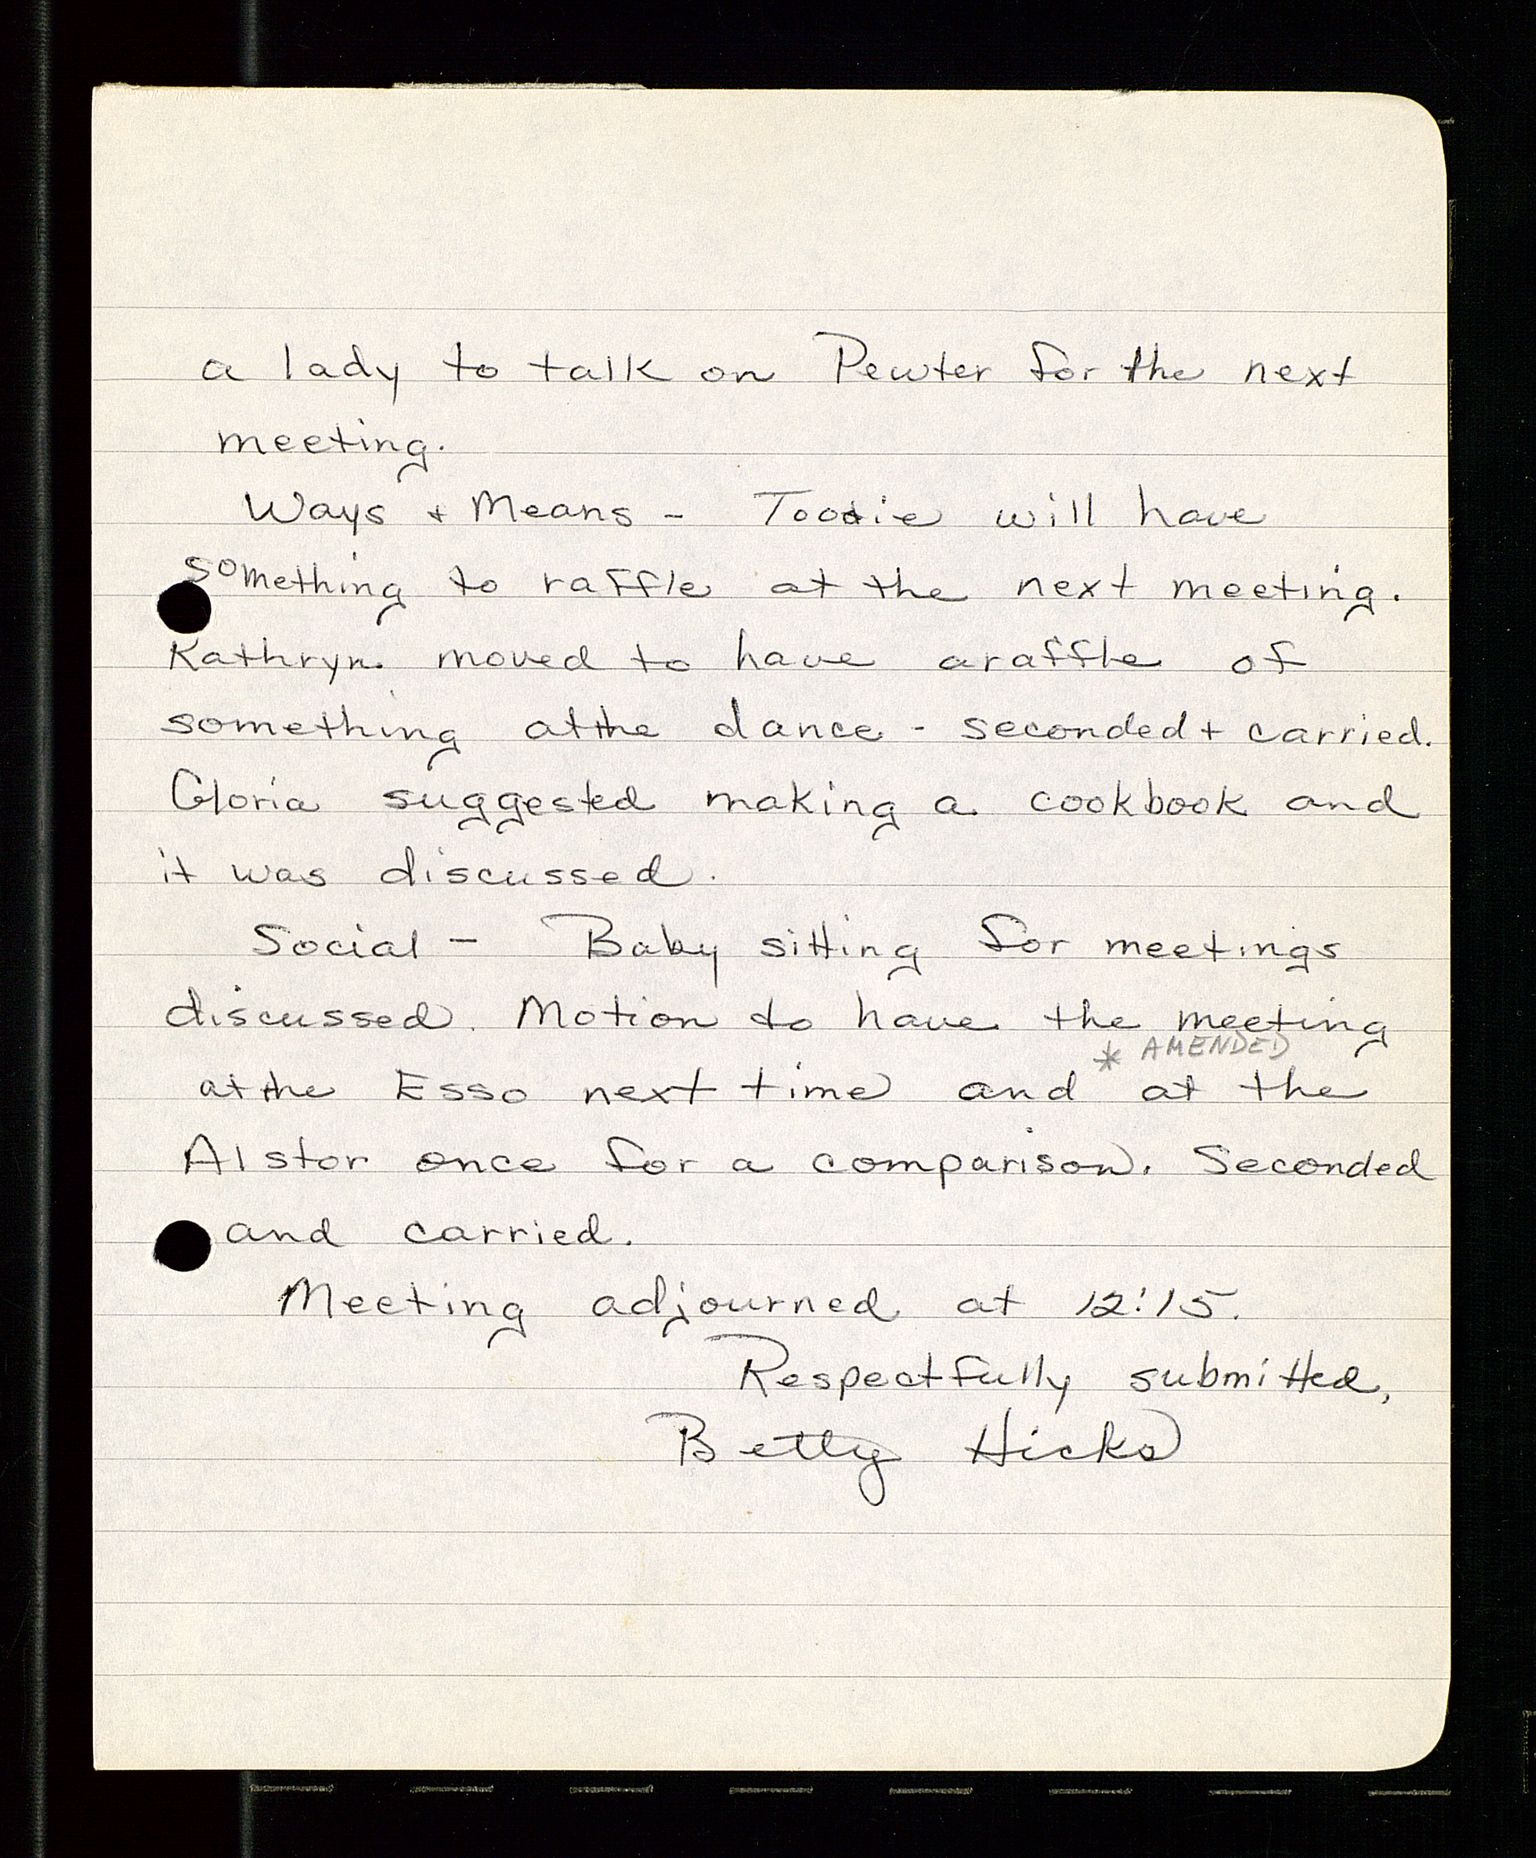 a lady to talk on Pewter for the next
meeting.
Ways + Means - Toodie will have
something to raffle at the next meeting.
Kathryn moved to have a raffle of
something at the dance - seconded + carried.
Gloria suggested making a cookbook and
it was discussed.
Social - Baby sitting for meetings
discussed. Motion to have the meeting
* AMENDED
at the Esso next time and at the
Alstor once for a comparison. Seconded
and carried.
Meeting adjourned at 12:15.
Respectfully submitted,
Betty Hicks